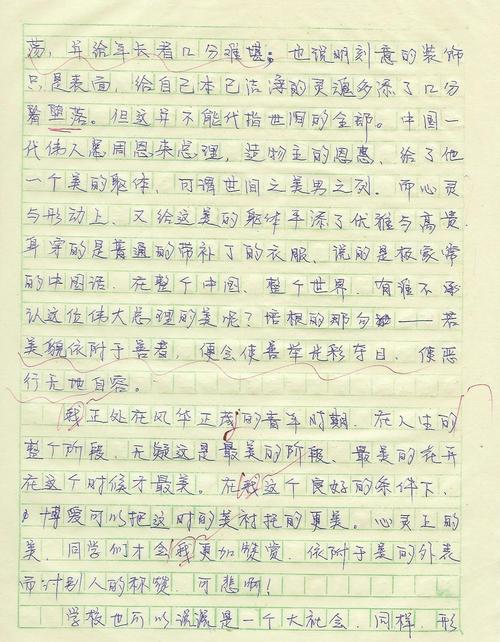 荡，并给年长者几分难堪；也说明刻意的装饰
只是表面，给自己本已洁净的灵魂多添了几分
堕落。但这并不能代指世间的全部。中国一
代伟人周恩来总理，造物主的恩惠，给了他
一个美的躯体，可谓世间之美男之列。而心灵
与形动上，又给这美的躯体平添了优雅与高贵
身穿的是普通的带补丁的衣服，说的是极家常
的中国话，在整个中国、整个世界，有谁不承
认这位伟大总理的美呢？培根的那句——若
美貌依附于善者，便会使善举光彩夺目，使恶
行无地自容。
我正处在风华正茂的青年时期，在人生的
整个阶段，无疑这是最美的阶段，最美的花开
在这个时候才最美。在我这个良好的条件下，
博爱可以把这时的美衬托的更美。心灵上的
美，同学们才会我更加赞赏，依附于美的外表
而讨别人的称赞，可悲啊！
学校也可以说是一个大社会，同样，形